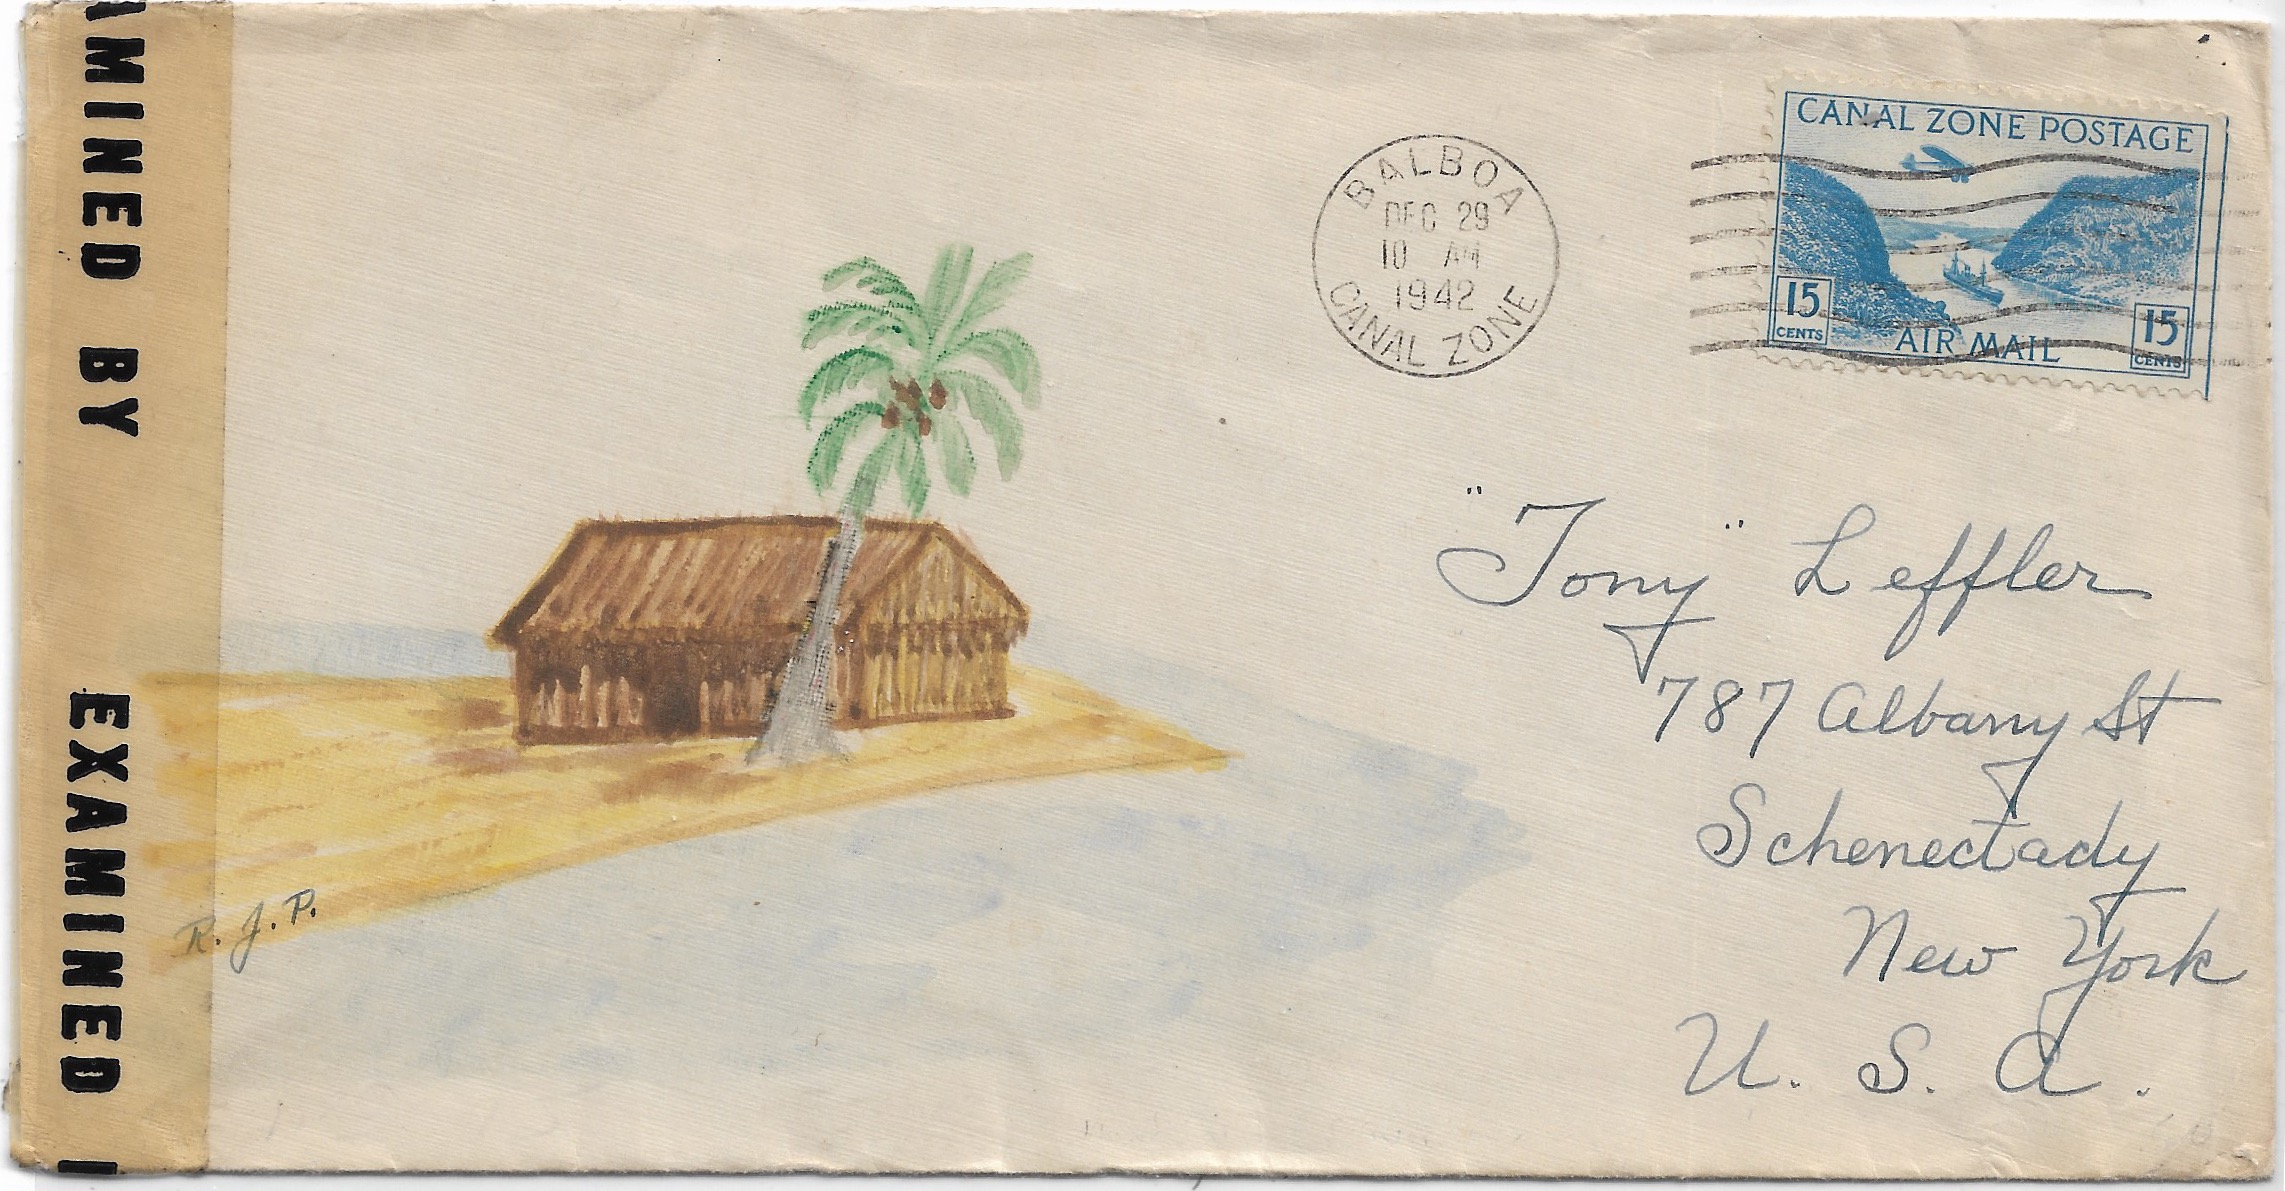 AMINED BY
EXAMINED
BALBOA
DEC 29
10 AM
1942
CANAL ZONE
CANAL ZONE POSTAGE
15
CENTS
AIR MAIL
15
CENTS
"Tony" Leffler
787 Albany St
Schenectady
New York
U. S. A.
R. J. P.